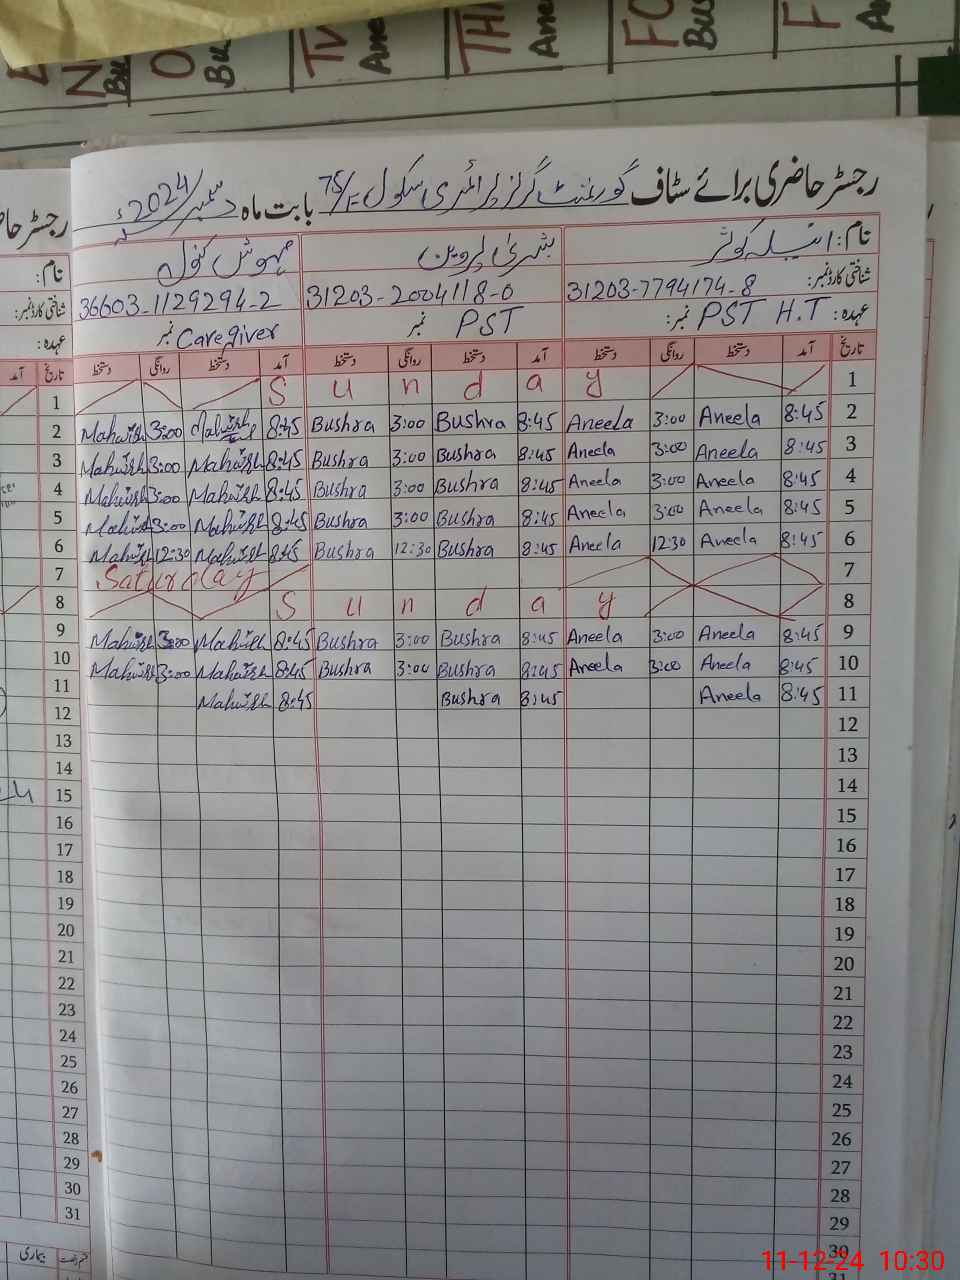 رجسٹر حاضری برائے سٹاف گورنمنٹ گرلز پرائمری سکول 75/F بابت ماہ دسمبر/2024ء
نام: انیلہ کوثر بشریٰ پروین مہوش کنول
شناختی کارڈنمبر: 31203-7794174-8 31203-2004118-0 36603-1129294-2
عہدہ: PST H.T نمبر: PST نمبر Caregiver نمبر
تاریخ آمد دستخط روانگی دستخط آمد دستخط روانگی دستخط آمد دستخط روانگی دستخط تاریخ
1 S u n d a y 1
2 Mahwish 3:00 Mahwish 8:45 Bushra 3:00 Bushra 8:45 Aneela 3:00 Aneela 8:45 2
3 Mahwish 3:00 Mahwish 8:45 Bushra 3:00 Bushra 8:45 Aneela 3:00 Aneela 8:45 3
4 Mahwish 3:00 Mahwish 8:45 Bushra 3:00 Bushra 8:45 Aneela 3:00 Aneela 8:45 4
5 Mahwish 3:00 Mahwish 8:45 Bushra 3:00 Bushra 8:45 Aneela 3:00 Aneela 8:45 5
6 Mahwish 12:30 Mahwish 8:45 Bushra 12:30 Bushra 8:45 Aneela 12:30 Aneela 8:45 6
7 Saturday 7
8 S u n d a y 8
9 Mahwish 3:00 Mahwish 8:45 Bushra 3:00 Bushra 8:45 Aneela 3:00 Aneela 8:45 9
10 Mahwish 3:00 Mahwish 8:45 Bushra 3:00 Bushra 8:45 Aneela 3:00 Aneela 8:45 10
11 Mahwish 8:45 Bushra 8:45 Aneela 8:45 11
12 12
13 13
14 14
15 15
16 16
17 17
18 18
19 19
20 20
21 21
22 22
23 23
24 24
25 25
26 26
27 27
28 28
29 29
30 30
31 31
11-12-24 10:30